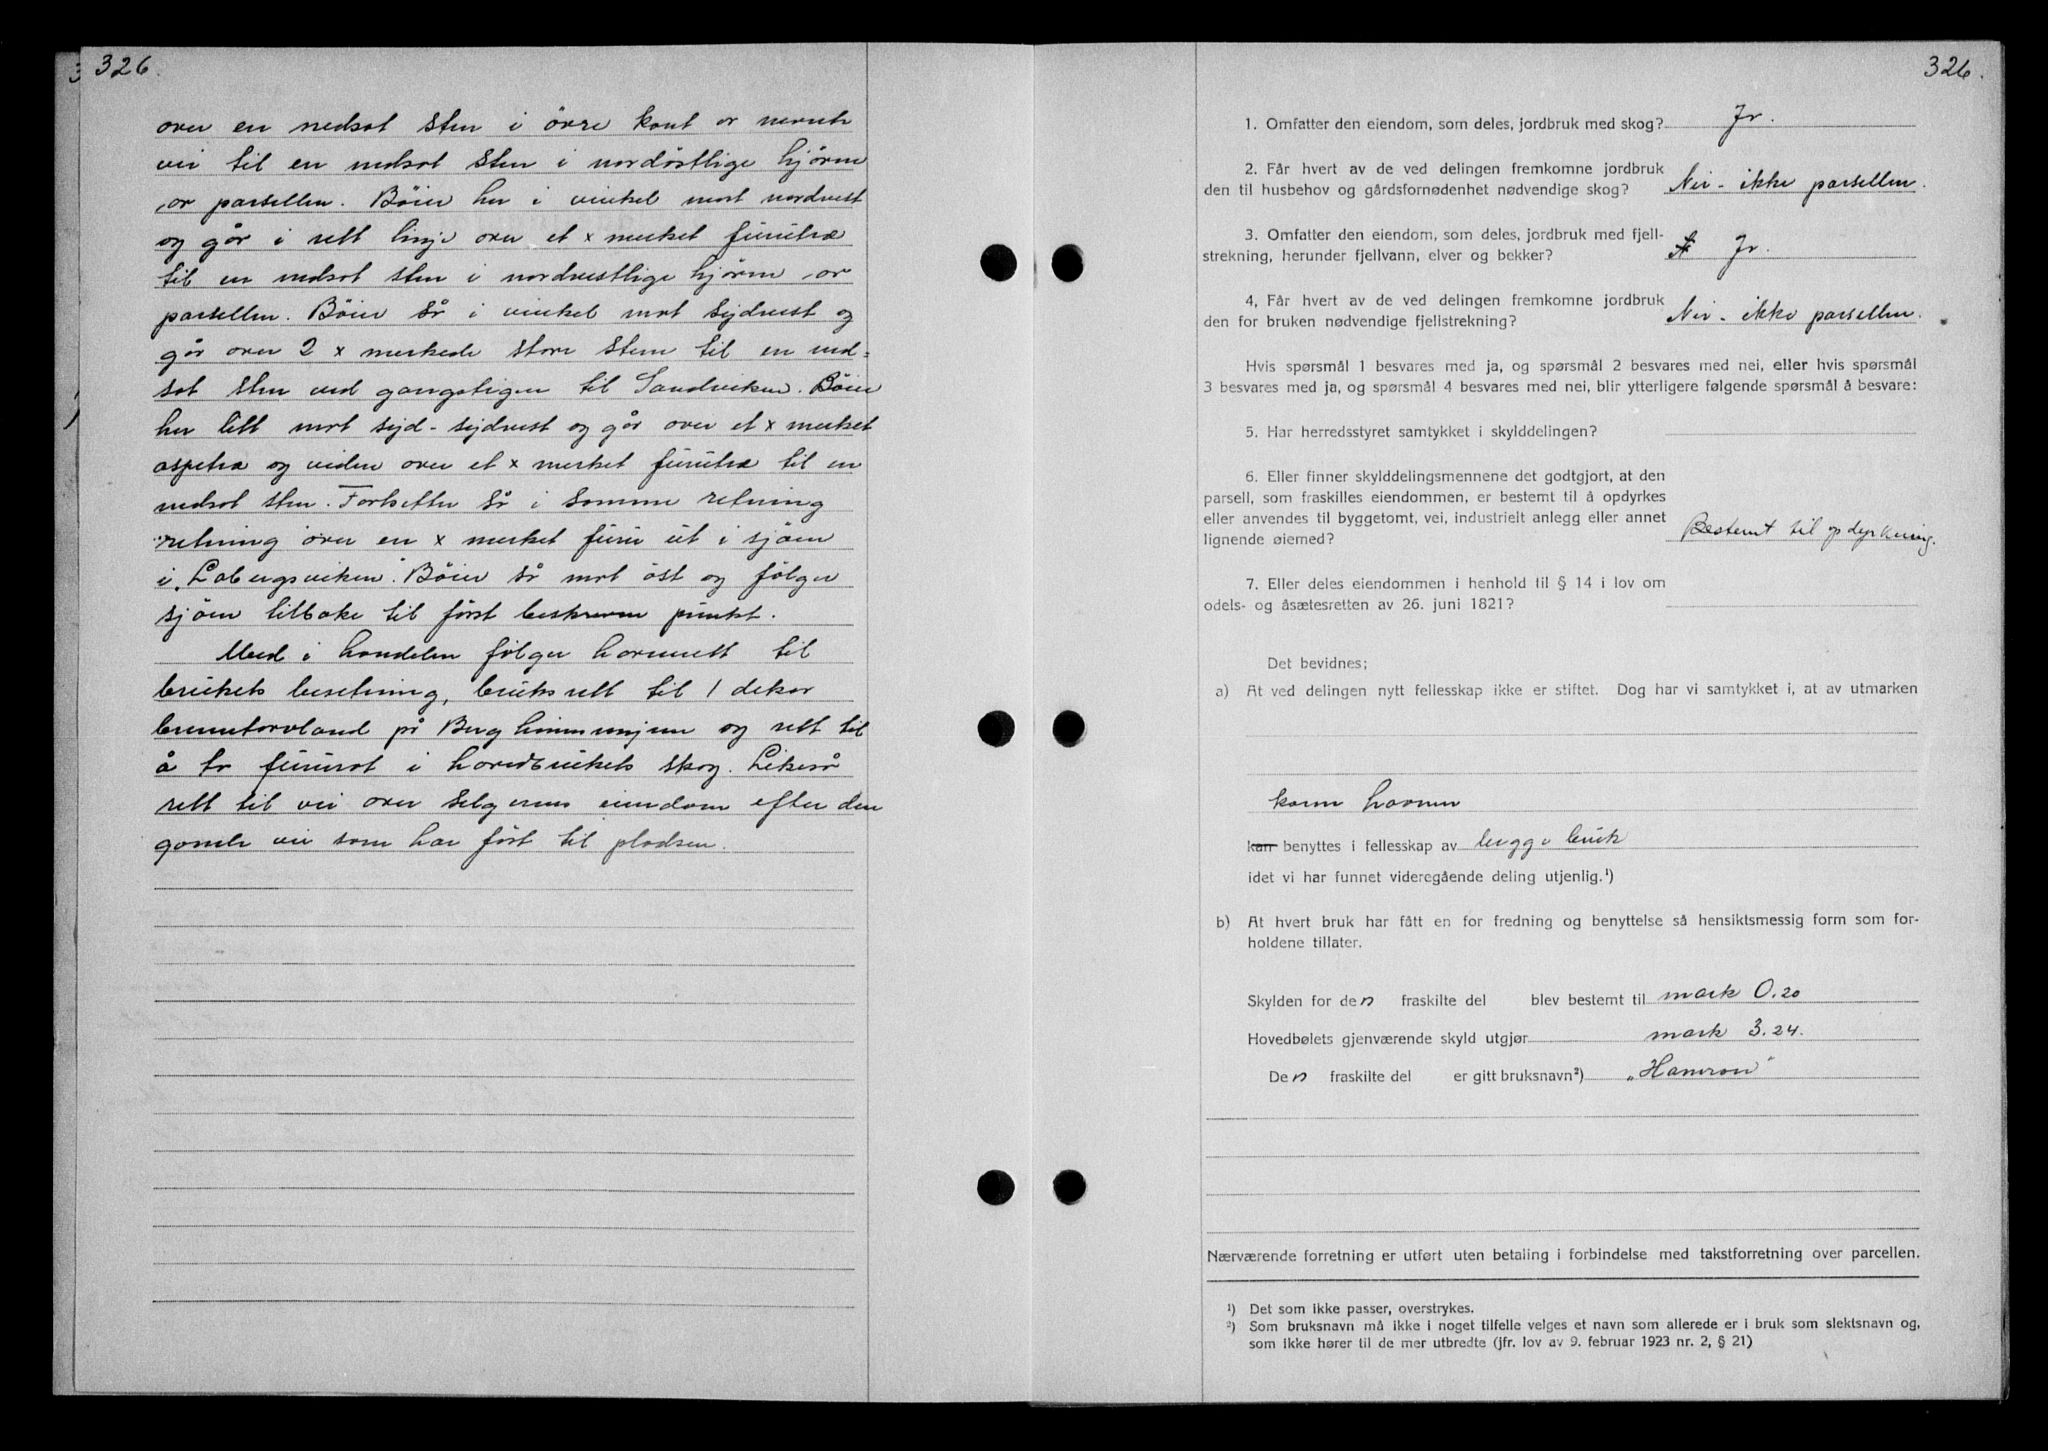 326.
over en nedsat sten i övre kant av nevnte
vei til en nedsat sten i nordöstlige hjörne
av parsellen. Böier her i vinkel mot nordvest
og går i rett linje over et x merket furutræ
til en nedsat sten i nordvestlige hjörne av
parsellen. Böier så i vinkel mot sydvest og
går over 2 x merkede store stene til en ned=
sat sten ved gangstigen til Sandviken. Böier
her litt mot syd-sydvest og går over et x merket
aspetræ og videre over et x merket furutræ til en
nedsat sten. Fortsetter så i samme retning
retning over en x merket furu ut i sjöen
i „Labergsviken". Böier så mot öst og fölger
sjöen tilbake til först beskrevne punkt.
Med i handelen fölger havnerett til
brukets besetning, bruksrett til 1 dekar
brenntorvland på Berghimmyrene og rett til
å ta fururot i hovedbrukets skog. Likeså
rett til vei over selgerens eiendom efter den
gamle vei som har fört til pladsen.
326.
1. Omfatter den eiendom, som deles, jordbruk med skog? Ja.
2. Får hvert av de ved delingen fremkomne jordbruk
den til husbehov og gårdsfornødenhet nødvendige skog? Nei - ikke parsellen.
3. Omfatter den eiendom, som deles, jordbruk med fjell-
strekning, herunder fjellvann, elver og bekker? Ja.
4, Får hvert av de ved delingen fremkomne jordbruk
den for bruken nødvendige fjellstrekning? Nei - ikke parsellen.
Hvis spørsmål 1 besvares med ja, og spørsmål 2 besvares med nei, eller hvis spørsmål
3 besvares med ja, og spørsmål 4 besvares med nei, blir ytterligere følgende spørsmål å besvare:
5. Har herredsstyret samtykket i skylddelingen?
6. Eller finner skylddelingsmennene det godtgjort, at den
parsell, som fraskilles eiendommen, er bestemt til å opdyrkes
eller anvendes til byggetomt, vei, industrielt anlegg eller annet
lignende øiemed? Bestemt til opdyrkning.
7. Eller deles eiendommen i henhold til § 14 i lov om
odels- og åsætesretten av 26. juni 1821?
Det bevidnes;
a) At ved delingen nytt fellesskap ikke er stiftet. Dog har vi samtykket i, at av utmarken
havnen
kan benyttes i fellesskap av begge bruk
idet vi har funnet videregående deling utjenlig.¹)
b) At hvert bruk har fått en for fredning og benyttelse så hensiktsmessig form som for-
holdene tillater.
Skylden for den fraskilte del blev bestemt til mark 0.20
Hovedbølets gjenværende skyld utgjør mark 3.24.
Den fraskilte del er gitt bruksnavn²) „Hamran"
Nærværende forretning er utført uten betaling i forbindelse med takstforretning over parcellen.
¹) Det som ikke passer, overstrykes.
²) Som bruksnavn må ikke i noget tilfelle velges et navn som allerede er i bruk som slektsnavn og,
som ikke hører til de mer utbredte (jfr. lov av 9. februar 1923 nr. 2, § 21)